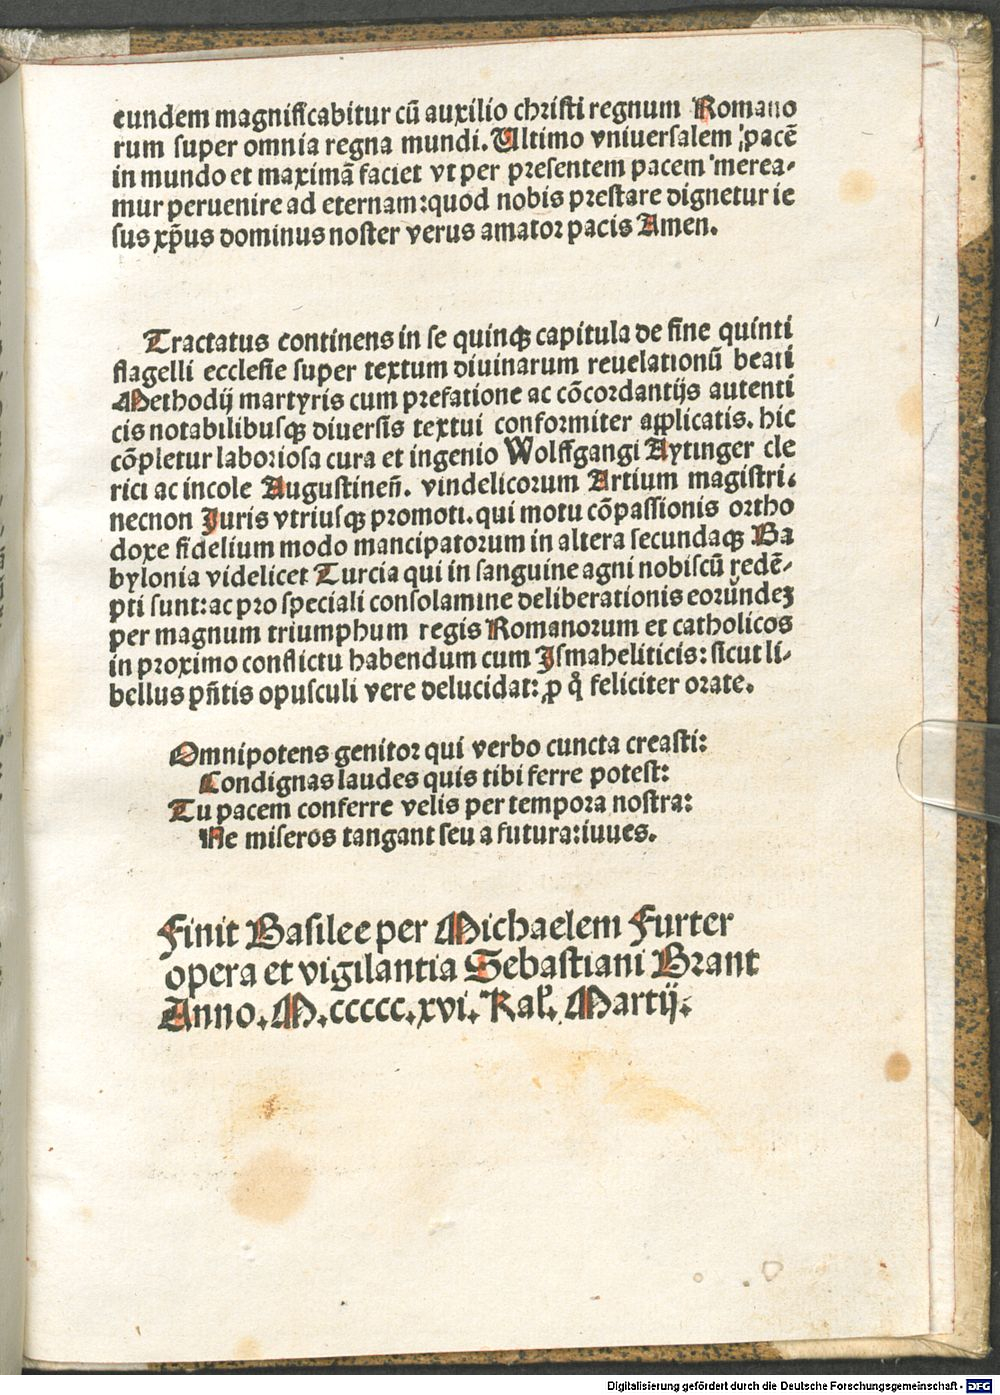 eundem magnificabitur cū auxilio christi regnum Romano
rum super omnia regna mundi. Ultimo vniuersalem pacē
in mundo et maximā faciet vt per presentem pacem merea-
mur peruenire ad eternam: quod nobis prestare dignetur ie
sus xp̄us dominus noster verus amator pacis Amen.
Tractatus continens in se quinqꝫ capitula de fine quinti
flagelli ecclesie super textum diuinarum reuelationū beati
Methodij martyris cum prefatione ac cōcordantijs autenti
cis notabilibusqꝫ diuersis textui conformiter applicatis. hic
cōpletur laboriosa cura et ingenio Wolffgangi Aytinger cle
rici ac incole Augustineñ. vindelicorum Artium magistri.
necnon Juris vtriusqꝫ promoti. qui motu cōpassionis ortho
doxe fidelium modo mancipatorum in altera secundaqꝫ Ba
bylonia videlicet Turcia qui in sanguine agni nobiscū redē-
pti sunt: ac pro speciali consolamine deliberationis eorūndeꝫ
per magnum triumphum regis Romanorum et catholicos
in proximo conflictu habendum cum Ismaheliticis: sicut li-
bellus pñtis opusculi vere delucidat: ꝓ q̊ feliciter orate.
Omnipotens genitor qui verbo cuncta creasti:
Condignas laudes quis tibi ferre potest:
Tu pacem conferre velis per tempora nostra:
Ne miseros tangant seu a futura: iuues.
Finit Basilee per Michaelem Furter
opera et vigilantia Sebastiani Brant
Anno. M.ccccc.xvi. Kal̓. Martij.
Digitalisierung gefördert durch die Deutsche Forschungsgemeinschaft - DFG